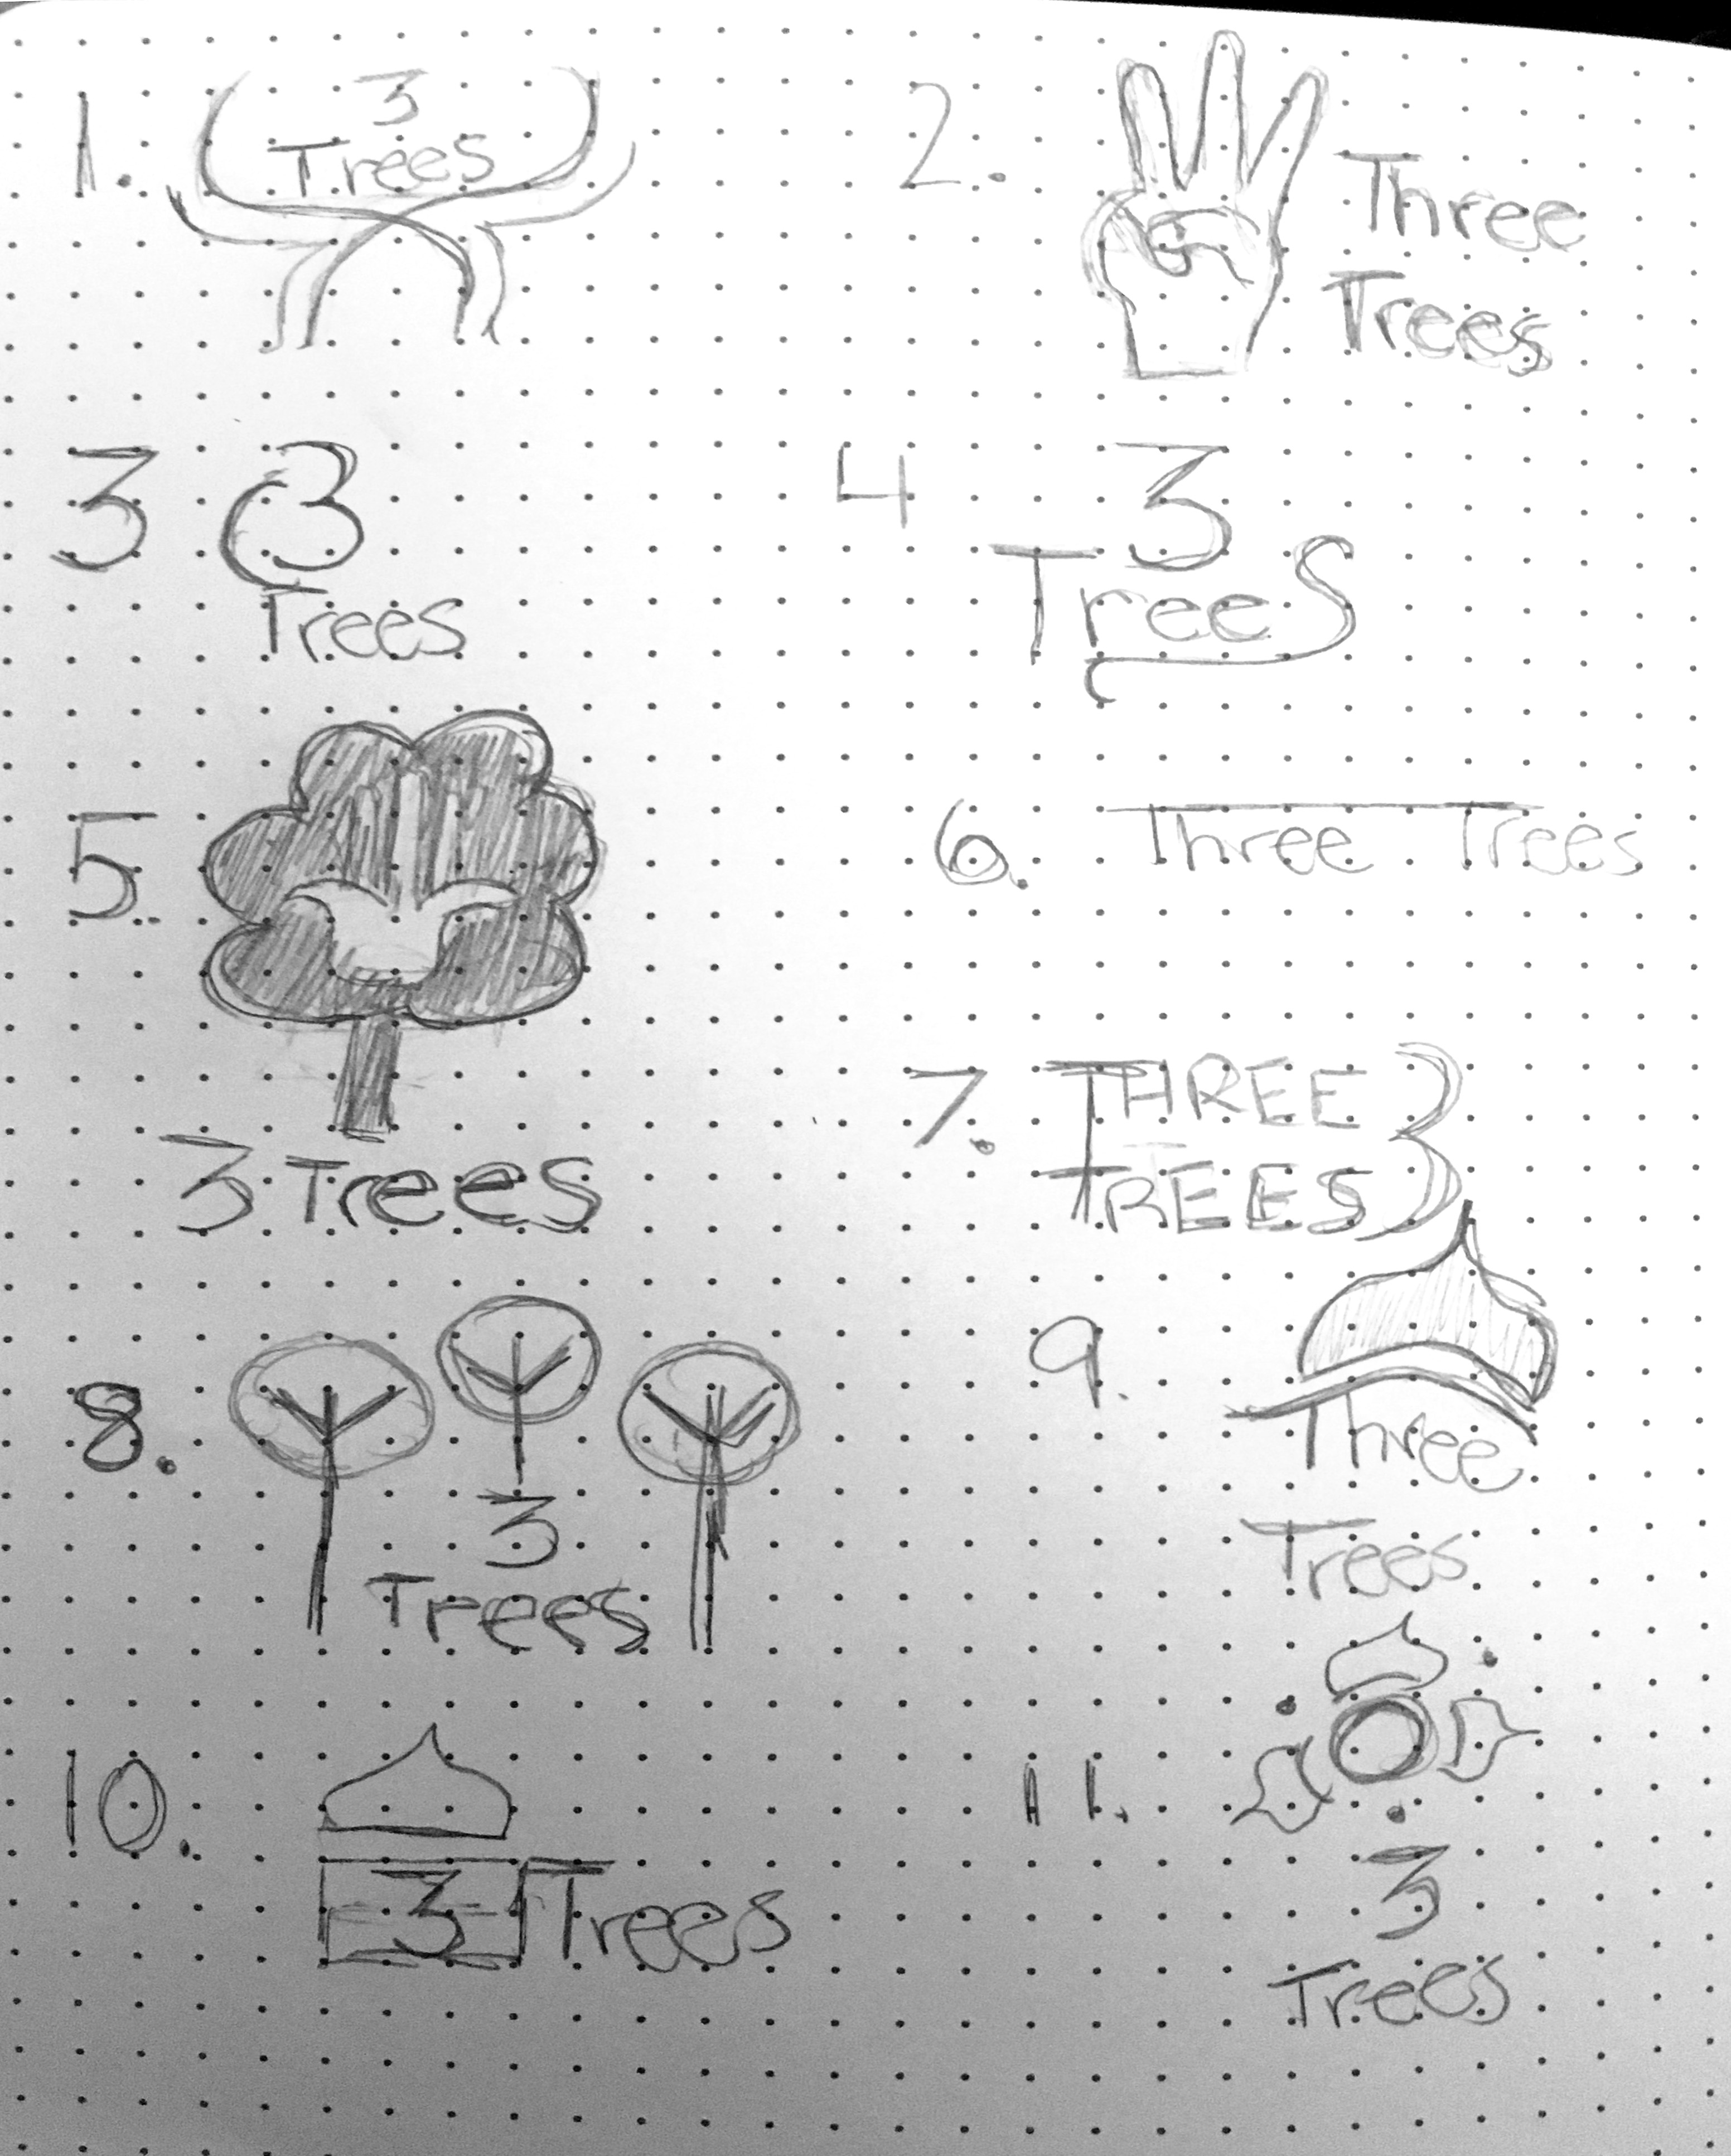 1.
3
Trees
2.
Three
Trees
3
3
Trees
4
3
Trees
5.
3 Trees
6.
Three Trees
7.
THREE
TREES
3
8.
3
Trees
9.
Three
Trees
10.
3 Trees
11.
3
Trees